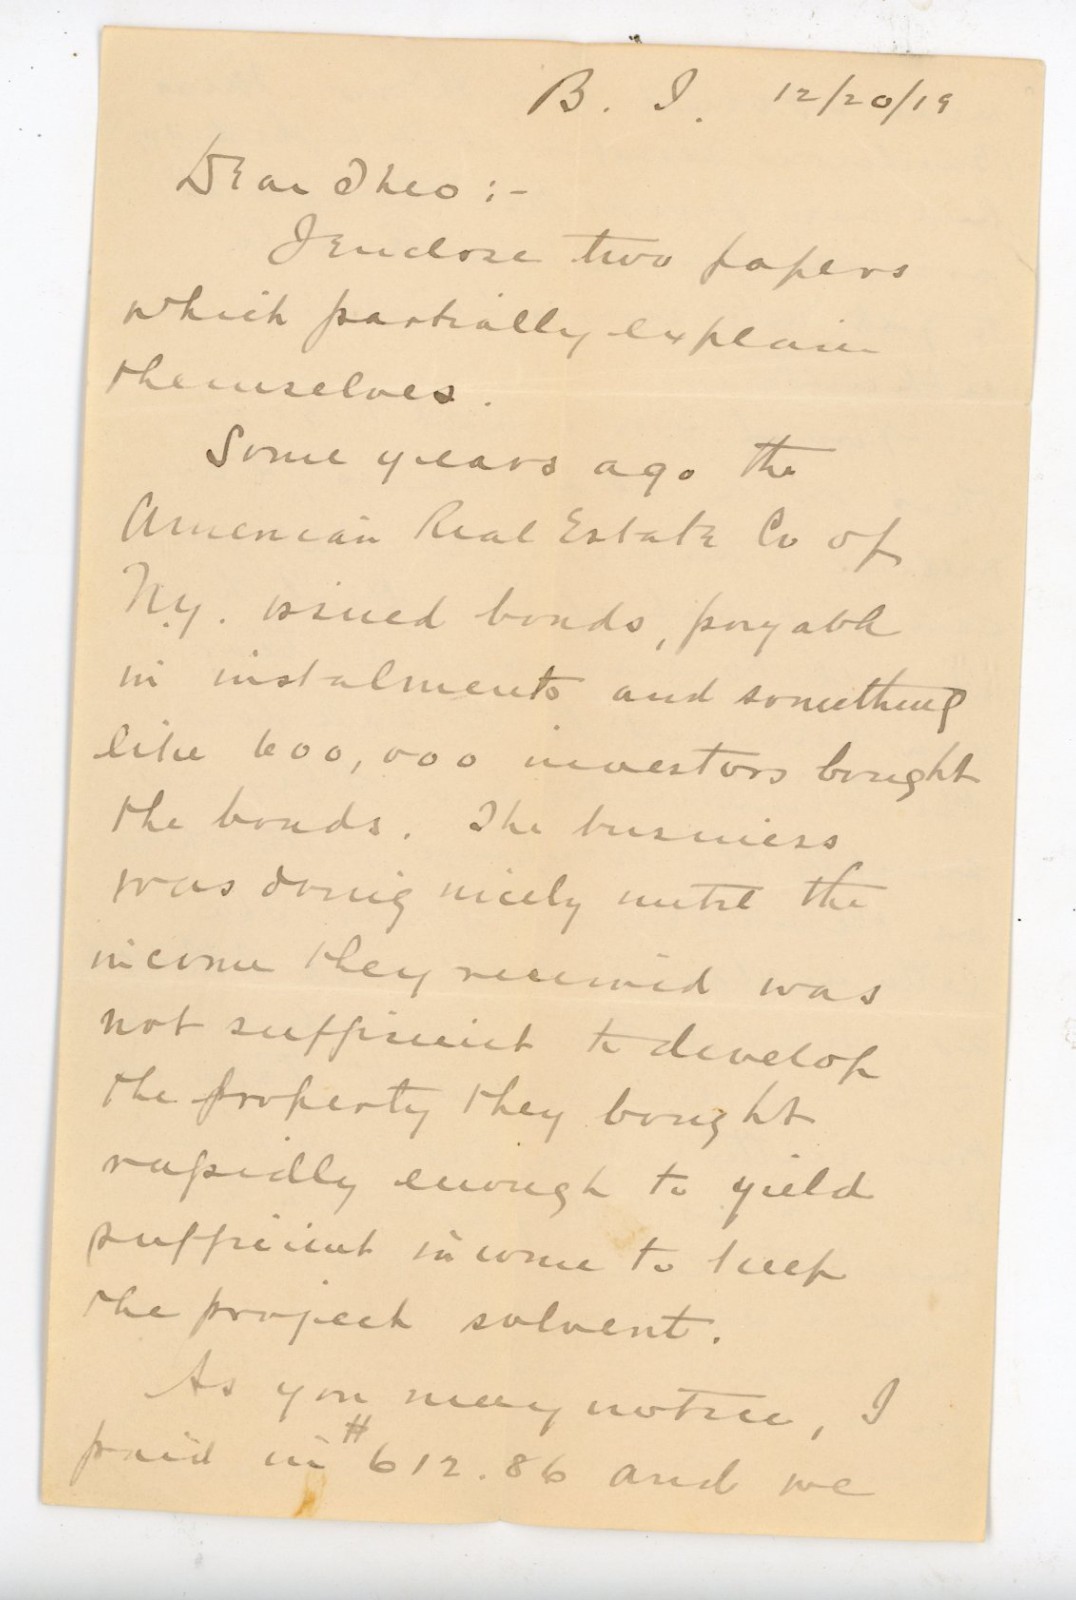 B. I. 12/20/19
Dear Theo :-
I enclose two papers
which partially explain
themselves.
Some years ago the
American Real Estate Co of
N.y. issued bonds, payable
in instalments and something
like 600,000 investors bought
the bonds. The business
was doing nicely until the
income they received was
not sufficient to develop
the property they bought
rapidly enough to yield
sufficient income to keep
the project solvent.
As you may notice, I
paid in #612.86 and we